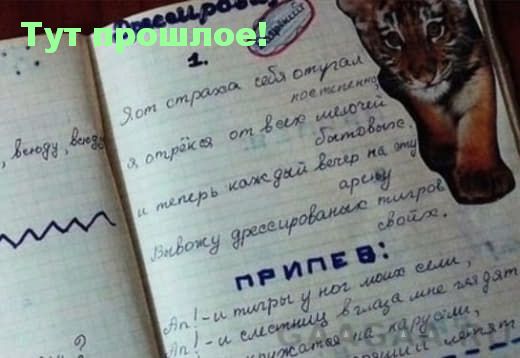 Тут прошлое!
Дрессировщ
1.
Я от страха себя отучал
постепенно
, всюду, всюду
я отрёкся от всех мелочей
бытовых.
и теперь каждый вечер на эту
арену
Вывожу дрессированых тигров
своих.
ПРИПЕВ:
Ап! - и тигры у ног моих сели,
Ап! - и с лестниц в глаза мне глядят
кружатся на карусели,
и летят